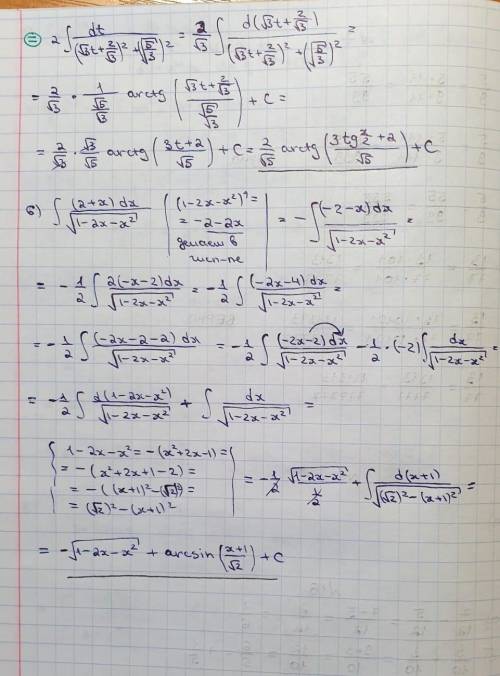 ⊜ 2 ∫ dt / ((√3t + 2/√3)² + (√5/√3)²) = 2/√3 ∫ d(√3t + 2/√3) / ((√3t + 2/√3)² + (√5/√3)²) =
= 2/√3 · 1/(√5/√3) arctg ((√3t + 2/√3) / (√5/√3)) + C =
= 2/√3 · √3/√5 arctg ((3t+2)/√5) + C = 2/√5 arctg ((3tg x/2 + 2)/√5) + C
б) ∫ (2+x)dx / √(1-2x-x²) | (1-2x-x²)' = = -2-2x делаем в числ-ле | = - ∫ (-2-x)dx / √(1-2x-x²) =
= -1/2 ∫ 2(-x-2)dx / √(1-2x-x²) = -1/2 ∫ (-2x-4)dx / √(1-2x-x²) =
= -1/2 ∫ (-2x-2-2)dx / √(1-2x-x²) = -1/2 ∫ (-2x-2)dx / √(1-2x-x²) - 1/2 · (-2) ∫ dx / √(1-2x-x²) =
= -1/2 ∫ d(1-2x-x²) / √(1-2x-x²) + ∫ dx / √(1-2x-x²) =
1-2x-x² = -(x²+2x-1) =
= -(x²+2x+1-2) =
= -((x+1)²-(√2)²) =
= (√2)²-(x+1)²
= -1/2 √(1-2x-x²) / (1/2) + ∫ d(x+1) / √((√2)²-(x+1)²) =
= -√(1-2x-x²) + arcsin ((x+1)/√2) + C